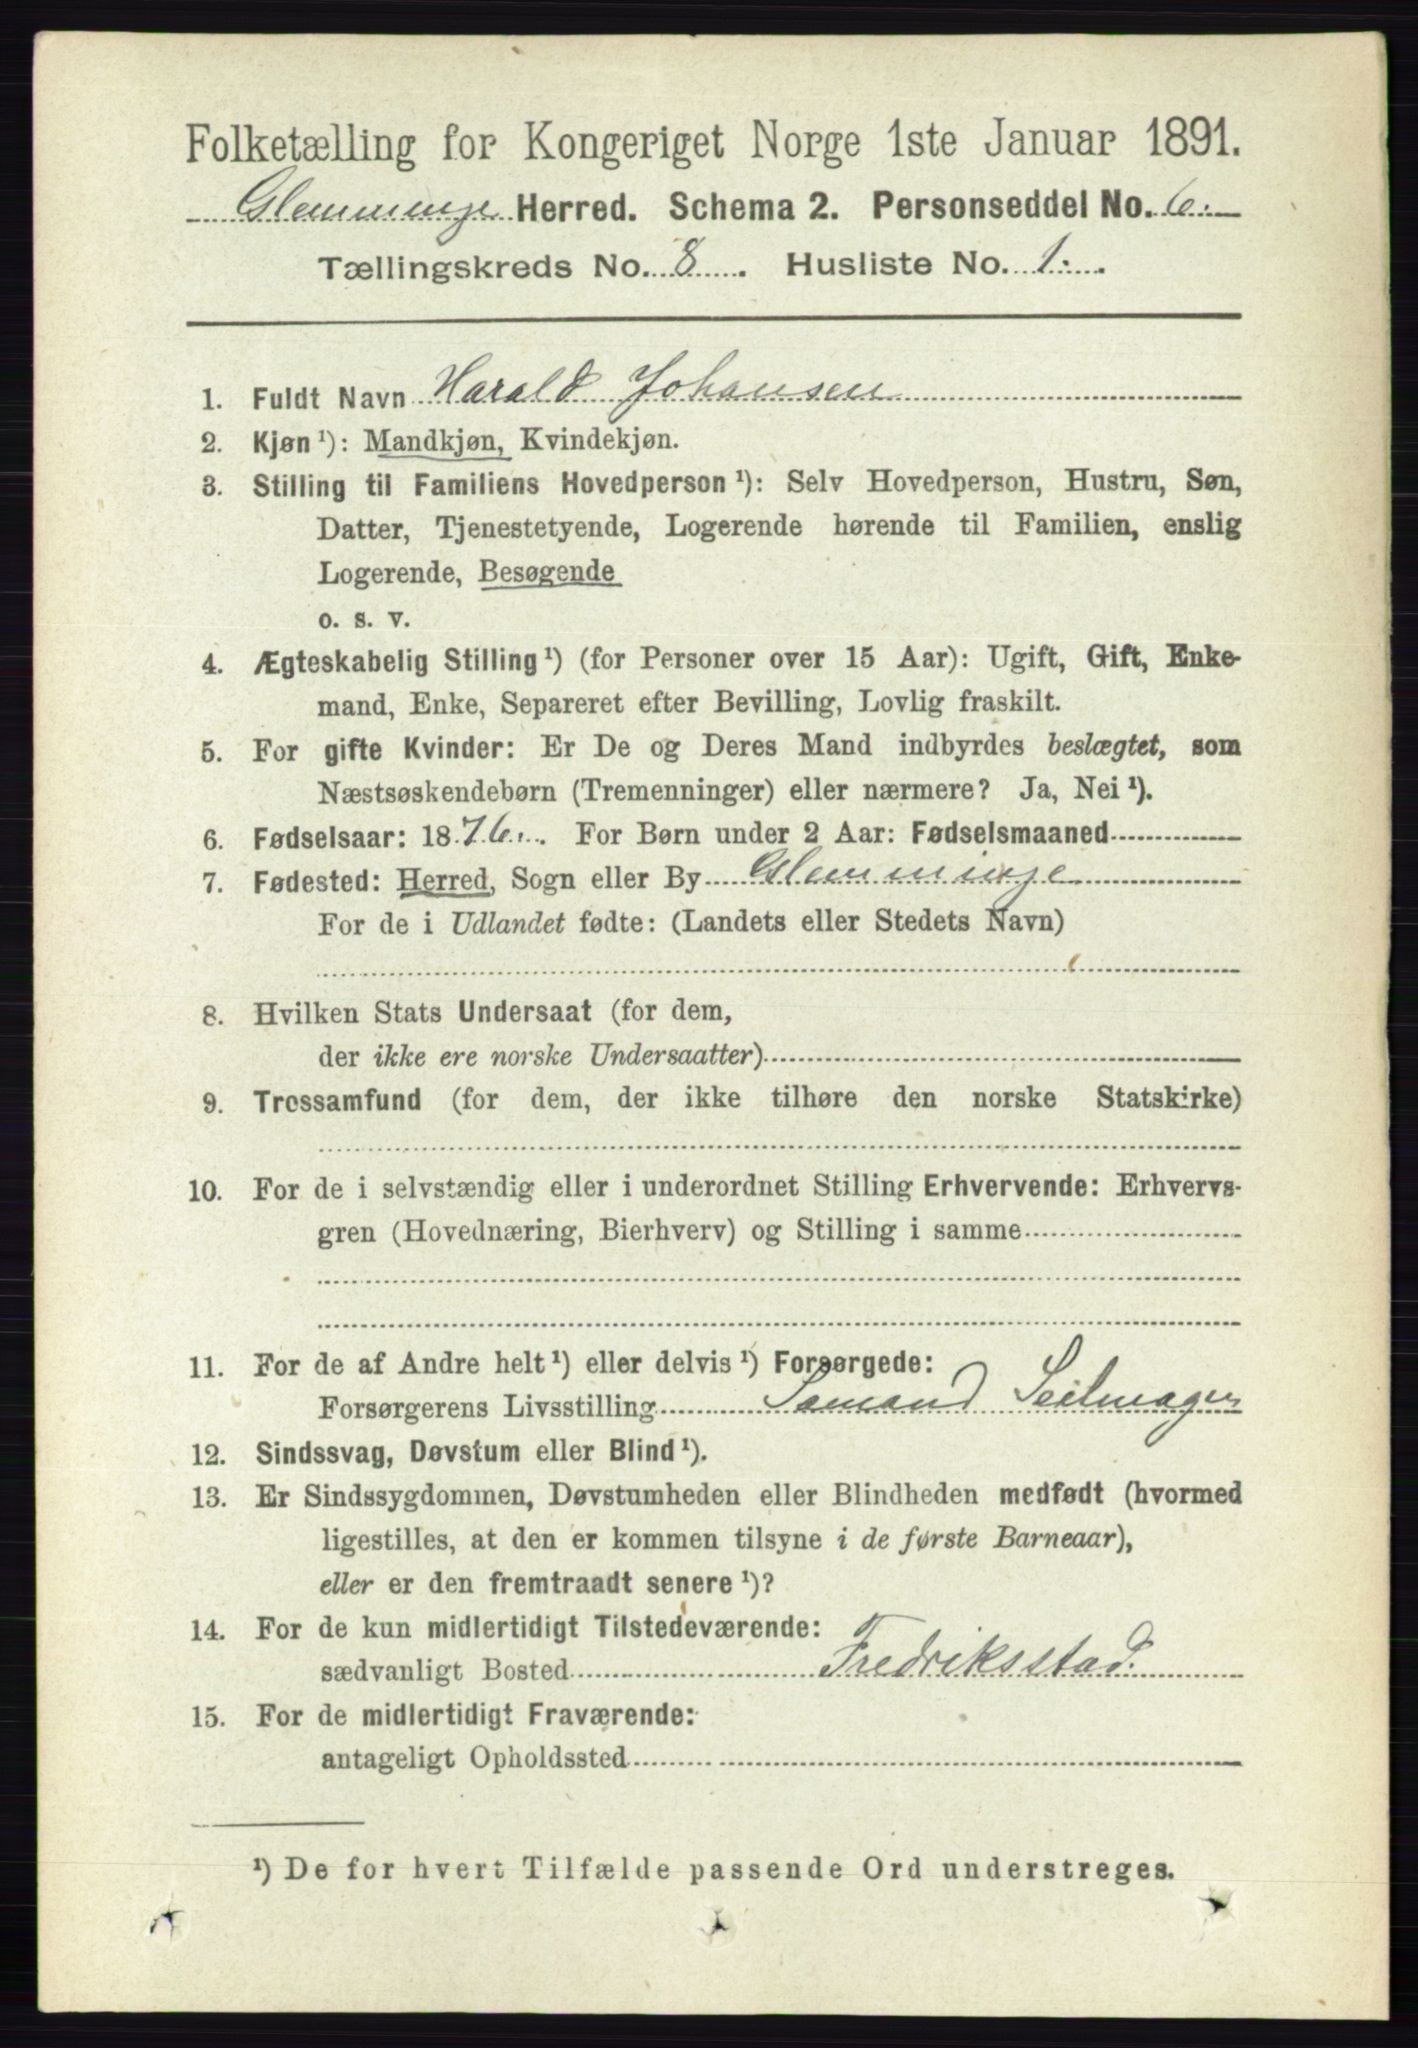 Folketælling for Kongeriget Norge 1ste Januar 1891.
Glemminge Herred. Schema 2. Personseddel No. 6.
Tællingskreds No. 8. Husliste No. 1.
1. Fuldt Navn Harald Johansen
2. Kjøn ¹): Mandkjøn, Kvindekjøn.
3. Stilling til Familiens Hovedperson ¹): Selv Hovedperson, Hustru, Søn,
Datter, Tjenestetyende, Logerende hørende til Familien, enslig
Logerende, Besøgende
o. s. v.
4. Ægteskabelig Stilling ¹) (for Personer over 15 Aar): Ugift, Gift, Enke-
mand, Enke, Separeret efter Bevilling, Lovlig fraskilt.
5. For gifte Kvinder: Er De og Deres Mand indbyrdes beslægtet, som
Næstsøskendebørn (Tremenninger) eller nærmere? Ja, Nei ¹).
6. Fødselsaar: 1876. For Børn under 2 Aar: Fødselsmaaned
7. Fødested: Herred, Sogn eller By Glemminge
For de i Udlandet fødte: (Landets eller Stedets Navn)
8. Hvilken Stats Undersaat (for dem,
der ikke ere norske Undersaatter)
9. Trossamfund (for dem, der ikke tilhøre den norske Statskirke)
10. For de i selvstændig eller i underordnet Stilling Erhvervende: Erhvervs-
gren (Hovednæring, Bierhverv) og Stilling i samme
11. For de af Andre helt ¹) eller delvis ¹) Forsørgede:
Forsørgerens Livsstilling Sømand Seilmager
12. Sindssvag, Døvstum eller Blind ¹).
13. Er Sindssygdommen, Døvstumheden eller Blindheden medfødt (hvormed
ligestilles, at den er kommen tilsyne i de første Barneaar),
eller er den fremtraadt senere ¹)?
14. For de kun midlertidigt Tilstedeværende:
sædvanligt Bosted Fredriksstad.
15. For de midlertidigt Fraværende:
antageligt Opholdssted
¹) De for hvert Tilfælde passende Ord understreges.